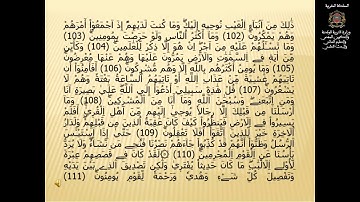 المملكة المغربية
وزارة التربية الوطنية
ذَٰلِكَ مِنَ اَنۢبَآءِ اِ۬لْغَيْبِ نُوحِيهِ إِلَيْكَۖ وَمَا كُنتَ لَدَيْهِمُۥٓ إِذَ اَجْمَعُوٓاْ أَمْرَهُمْ
وَهُمْ يَمْكُرُونَۖ (102) وَمَآ أَكْثَرُ اُ۬لنَّاسِ وَلَوْ حَرَصْتَ بِمُومِنِينَۖ (103)
وَمَا تَسْـَٔلُهُمْ عَلَيْهِ مِنَ اَجْرٍۖ اِنْ هُوَ إِلَّا ذِكْرٞ لِّلْعَٰلَمِينَۖ (104) وَكَأَيِّن
مِّنَ اٰيَةٖ فِے اِ۬لسَّمَٰوَٰتِ وَالَارْضِ يَمُرُّونَ عَلَيْهَا وَهُمْ عَنْهَا مُعْرِضُونَۖ
(105) وَمَا يُومِنُ أَكْثَرُهُم بِاللَّهِ إِلَّا وَهُم مُّشْرِكُونَۖ (106) أَفَأَمِنُوٓاْ أَن
تَاتِيَهُمْ غَٰشِيَةٞ مِّنْ عَذَابِ اِ۬للَّهِ أَوْ تَاتِيَهُمُ اُ۬لسَّاعَةُ بَغْتَةٗ وَهُمْ لَا
يَشْعُرُونَۖ (107) قُلْ هَٰذِهِۦ سَبِيلِيَ أَدْعُوٓاْ إِلَى اَ۬للَّهِۖ عَلَىٰ بَصِيرَةٍ اَنَا
وَمَنِ اِ۪تَّبَعَنِےۖ وَسُبْحَٰنَ اَ۬للَّهِ وَمَآ أَنَا مِنَ اَ۬لْمُشْرِكِينَۖ (108) وَمَآ
أَرْسَلْنَا مِن قَبْلِكَ إِلَّا رِجَالٗا يُوحَىٰٓ إِلَيْهِم مِّنَ اَهْلِ اِ۬لْقُر۪ىٰٓۖ أَفَلَمْ
يَسِيرُواْ فِے اِ۬لَارْضِ فَيَنظُرُواْ كَيْفَ كَانَ عَٰقِبَةُ اُ۬لذِينَ مِن قَبْلِهِمْۖ وَلَدَارُ
اُ۬لَاخِرَةِ خَيْرٞ لِّلذِينَ اَ۪تَّقَوَاْۖ اَفَلَا تَعْقِلُونَۖ (109) حَتَّىٰٓ إِذَا اَ۪سْتَيْـَٔسَ
اَ۬لرُّسُلُ وَظَنُّوٓاْ أَنَّهُمْ قَدْ كُذِّبُواْ جَآءَهُمْ نَصْرُنَا فَنُۨجِے مَن نَّشَآءُۖ وَلَا يُرَدُّ
بَأْسُنَا عَنِ اِ۬لْقَوْمِ اِ۬لْمُجْرِمِينَۖ (110) ۞لَقَدْ كَانَ فِے قَصَصِهِمْ عِبْرَةٞ
لِّأُوْلِے اِ۬لَالْبَٰبِۖ مَا كَانَ حَدِيثٗا يُفْتَر۪ىٰ وَلَٰكِن تَصْدِيقَ اَ۬لذِے بَيْنَ يَدَيْهِ
وَتَفْصِيلَ كُلِّ شَےْءٖ وَهُدىٗ وَرَحْمَةٗ لِّقَوْمٖ يُومِنُونَۖ (111)